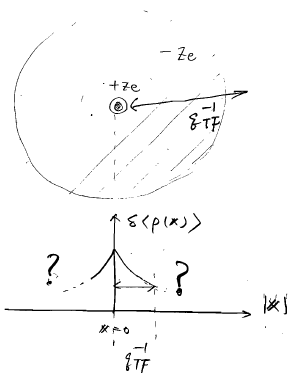 - Ze
+Ze
q_TF^-1
δ<ρ(x)>
? ?
|x|
x=0
q_TF^-1